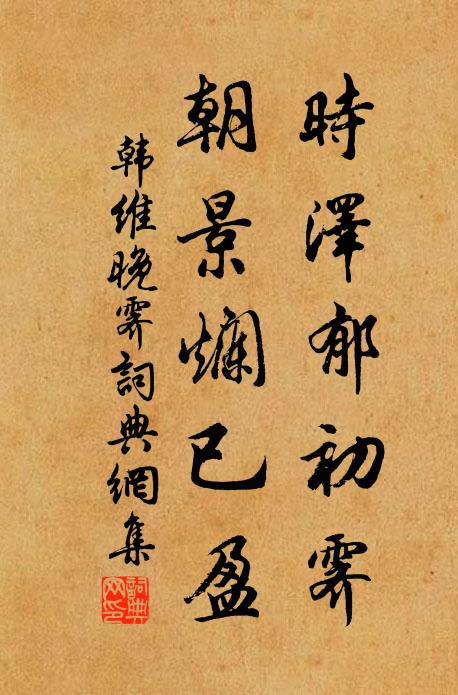 時澤郁初霽
朝景爛已盈
韩維晚霽詞典網集
詞典網印